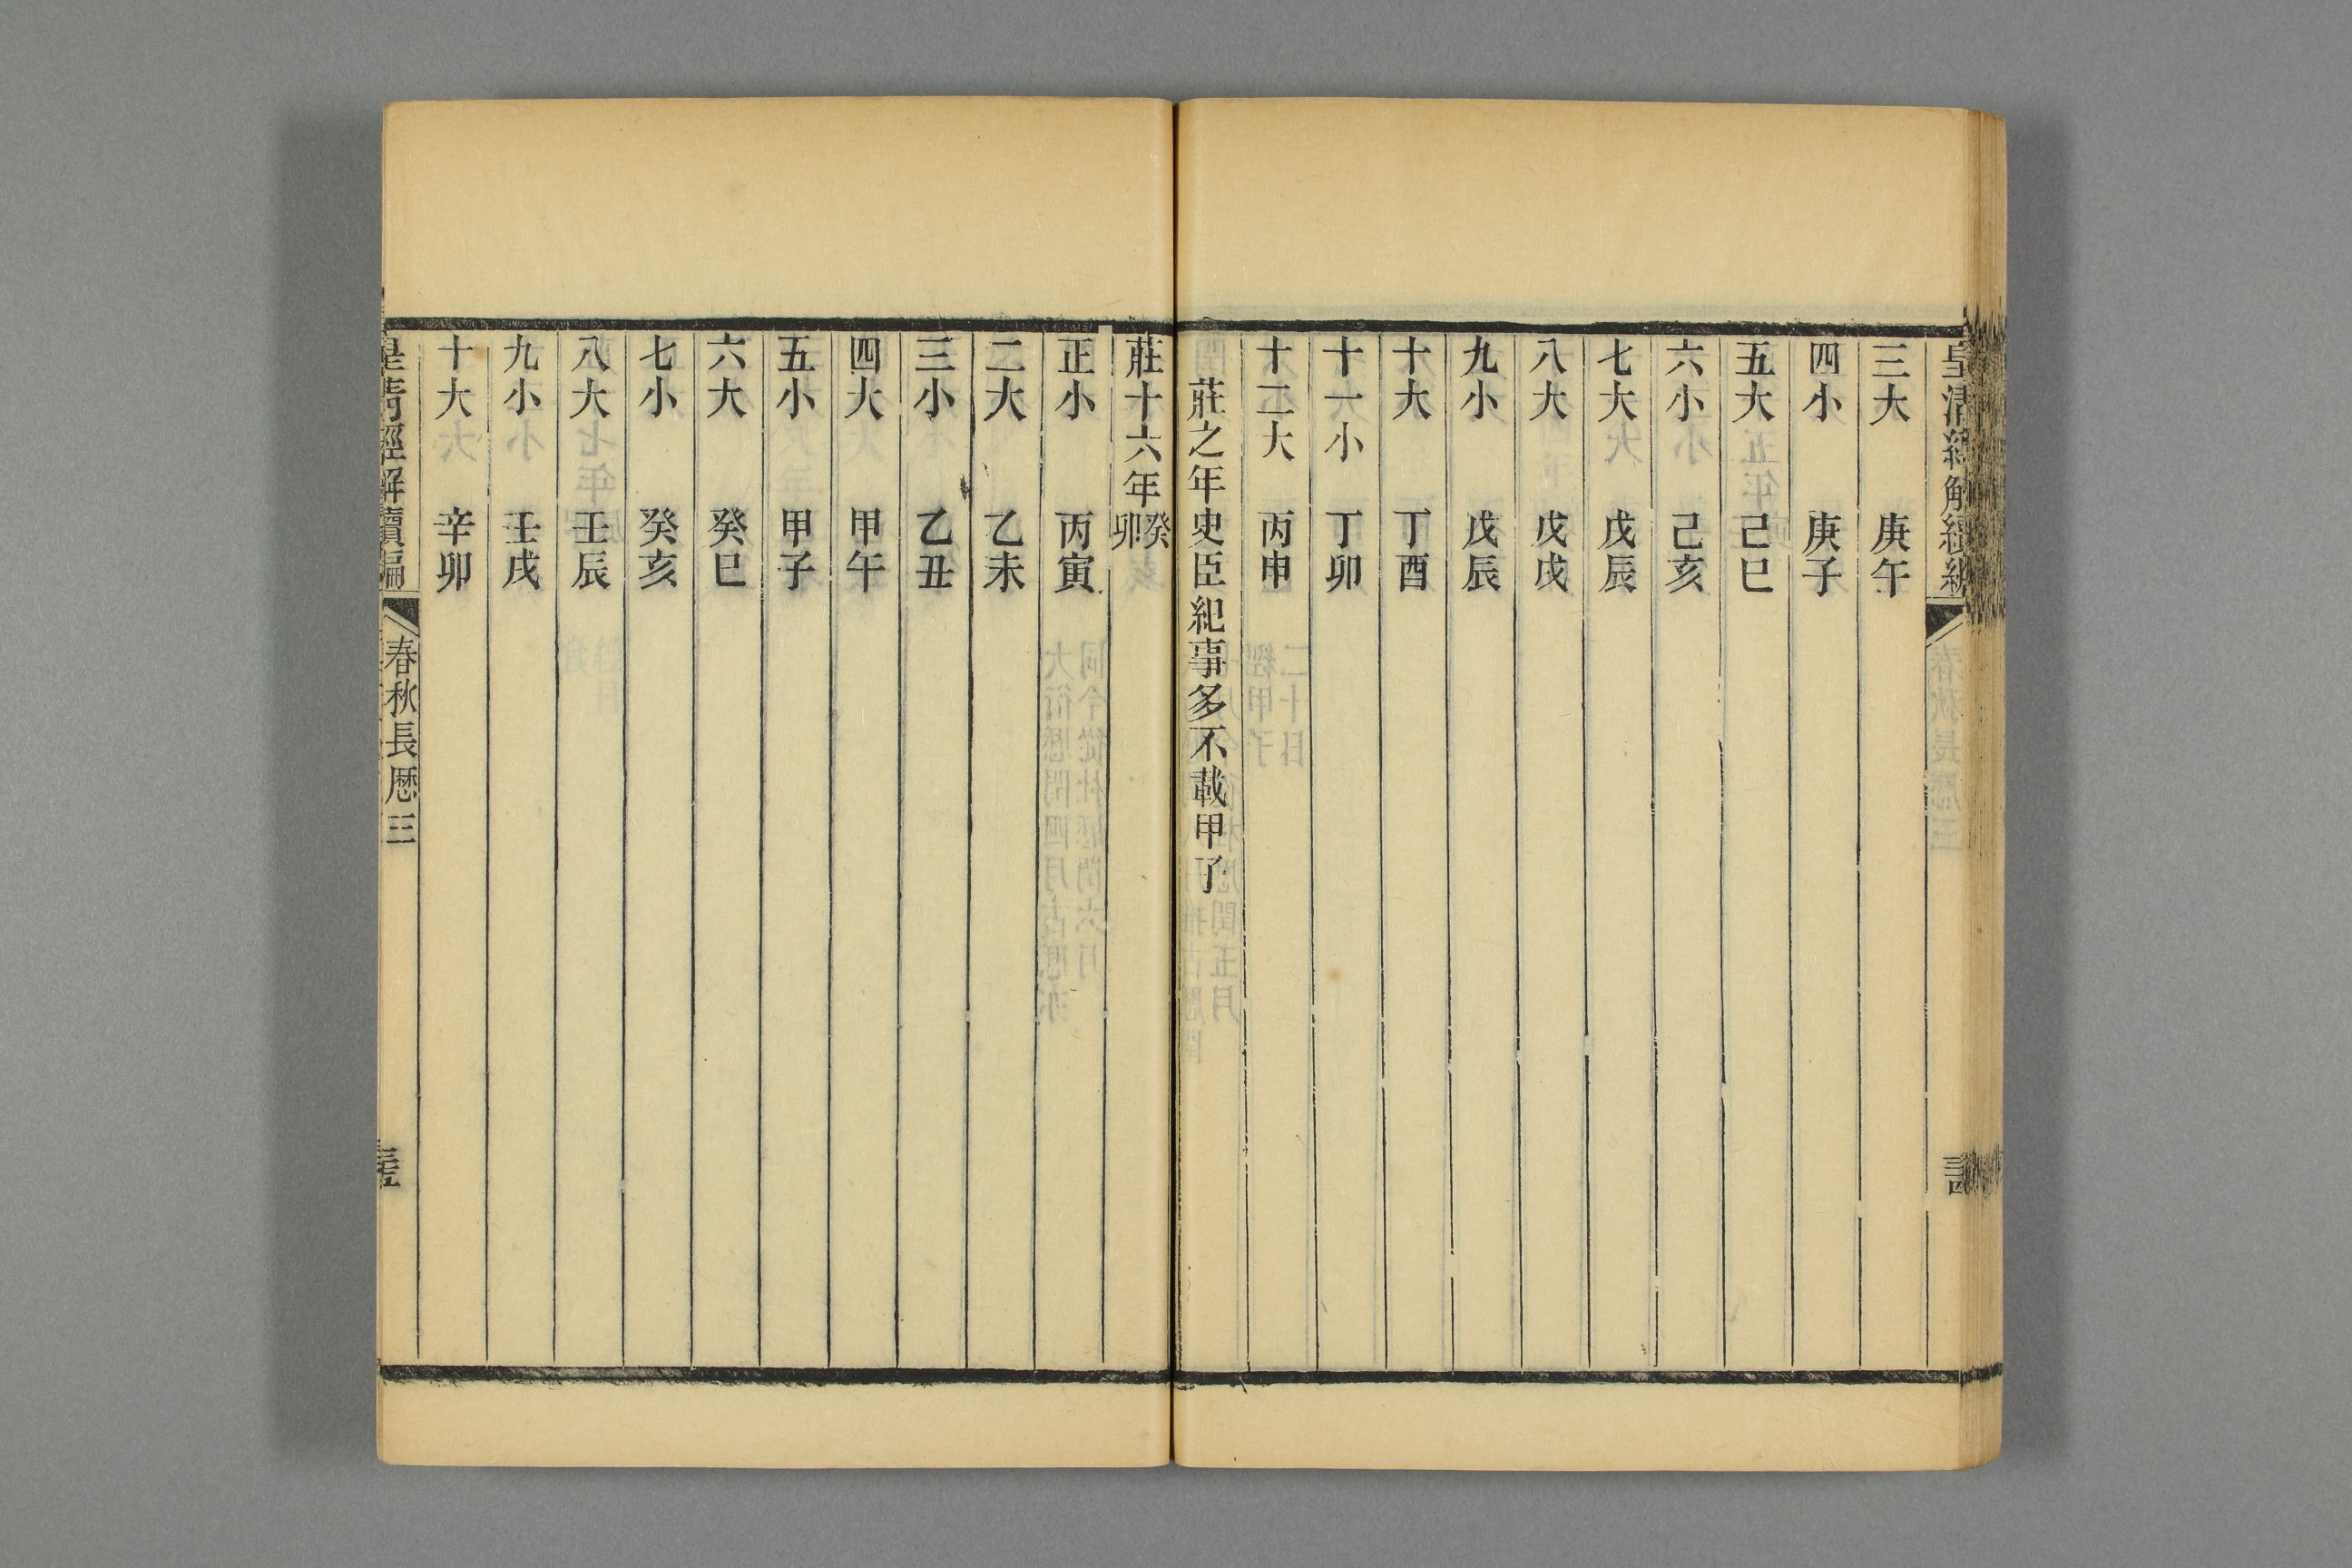 皇清經解續編
三大 庚午
四小 庚子
五大 己巳
六小 己亥
七大 戊辰
八大 戊戌
九小 戊辰
十大 丁酉
十一小 丁卯
十二大 丙申
莊之年史臣紀事多不載甲子
莊十六年癸卯
正小 丙寅
二大 乙未
三小 乙丑
四大 甲午
五小 甲子
六大 癸巳
七小 癸亥
八大 壬辰
九小 壬戌
十大 辛卯
皇清經解續編 春秋長厯三